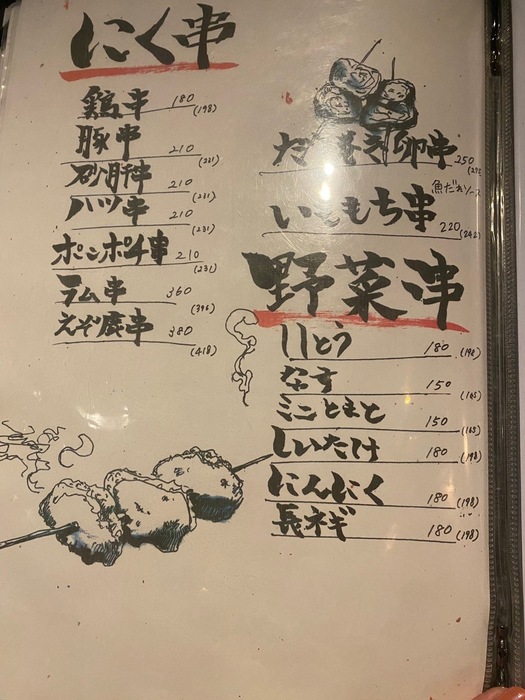 にく串
鶏串 180 (198)
豚串 210 (231)
砂肝串 210 (231)
ハツ串 210 (231)
ポンポチ串 210 (231)
ラム串 360 (396)
えぞ鹿串 380 (418)
たまき卵串 250
魚だれソース
いももち串 220 (242)
野菜串
ししとう 180 (198)
なす 150 (165)
ミニとまと 150 (165)
しいたけ 180 (198)
にんにく 180 (198)
長ネギ 180 (198)